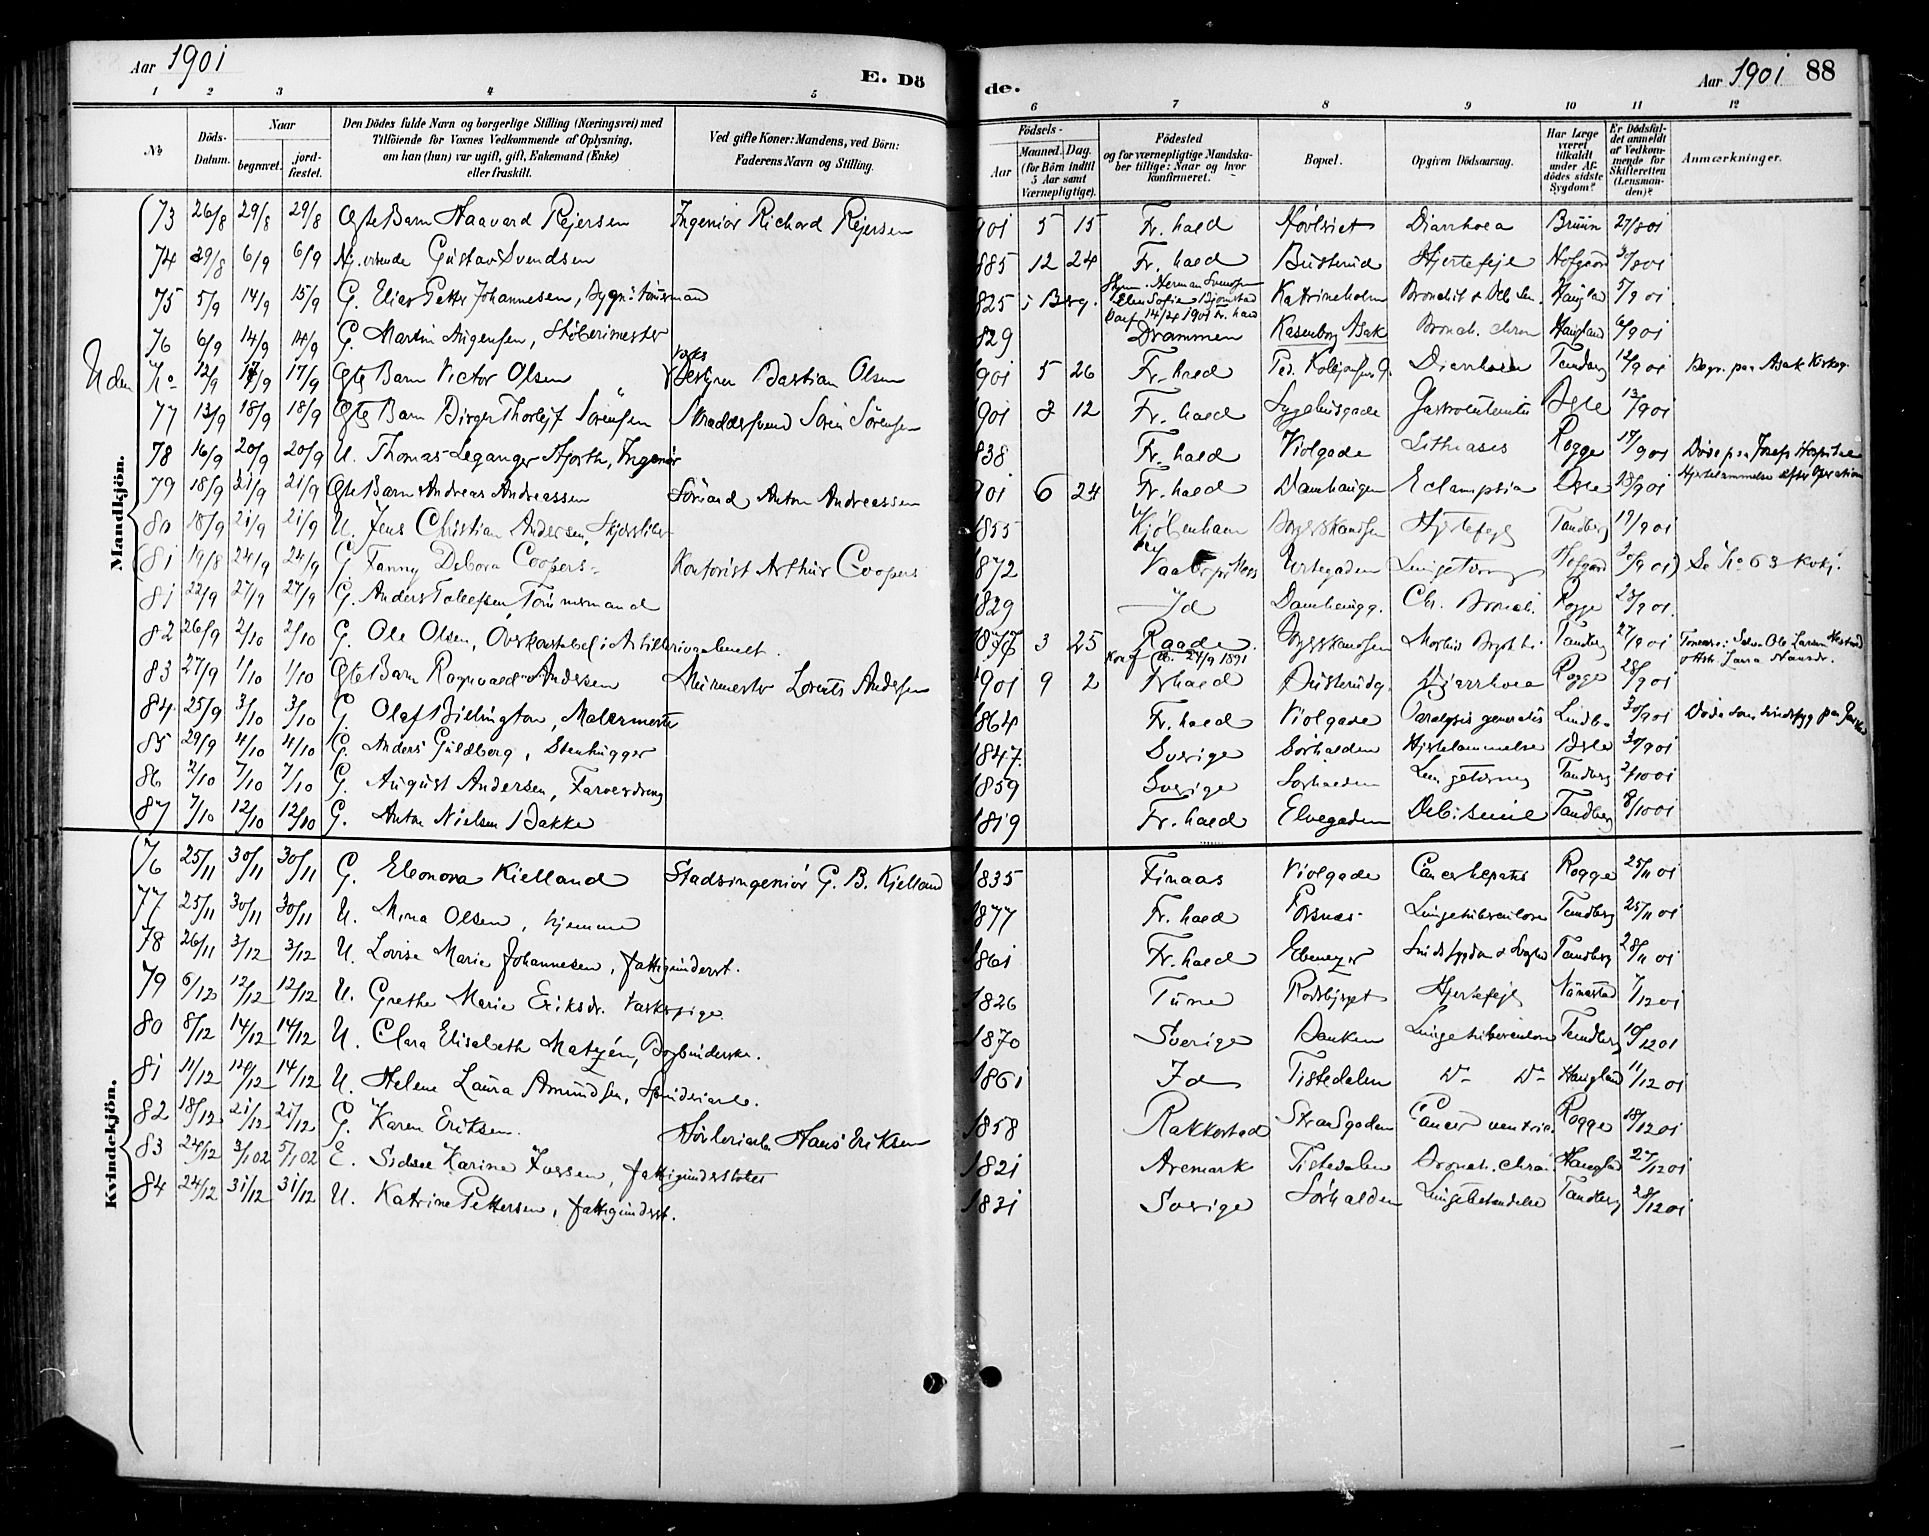 Aar 1901
E. Dö
de.
Aar 1901
88
1 2 3 4 5 6 7 8 9 10 11 12
№
Döds-Datum.
Naar
begravet.
jord-fæstet.
Den Dödes fulde Navn og borgerlige Stilling (Næringsvei) med
Tilföiende for Voxnes Vedkommende af Oplysning,
om han (hun) var ugift, gift, Enkemand (Enke)
eller fraskilt.
Ved gifte Koner: Mandens, ved Börn:
Faderens Navn og Stilling.
Födsels-
Aar
Maaned. Dag.
(for Börn indtil
5 Aar samt
Værnepligtige).
Födested
og for værnepligtige Mandska-
ber tillige: Naar og hvor
konfirmeret.
Bopæl.
Opgiven Dödsaarsag.
Har Læge
været
tilkaldt
under Af-
dödes sidste
Sygdom?
Er Dödsfal-
det anmeldt
af Vedkom-
mende for
Skifteretten
(Lensman-
den)?
Anmærkninger.
Mandkjön.
73 26/8 29/8 29/8 Ægte Barn Haavard Rejersen Ingeniör Richard Rejersen 901 5 15 Fr. hald Diarrhoea Bruun 27/8 01
74 29/8 6/9 6/9 Gustav Svendsen 885 12 24 Fr. hald Busterud Hjertefejl Hofgård
75 5/9 14/9 15/9 G. Elias Petter Johannesen, 825 i Berg. Katrineholm Haugland 5/9 01
Herman Svensen
Ellen Sofie Bjørnstad
Conf. 14/4 1901 Fr. hald
76 6/9 14/9 14/9 G. Martin 829 Drammen Asak Bronch. chron Haugland 6/9 01
Uden No 12/9 17/9 17/9 Ægte Barn Victor Olsen Bestyrer Bastian Olsen 901 5 26 Fr. hald Diarrhoea Tandberg 12/9 01 Begr. paa Asak Kirkeg.
77 13/9 18/9 18/9 Ægte Barn Birger Thorleif Sörensen Skræddersvend Sören Sörensen 901 3 12 Fr. hald Sygehusgade 13/9 01
78 16/9 20/9 20/9 U. Thomas Leganger Hjorth, Ingeniör 838 Fr. hald Violgade Lithiasis Rogge 17/9 01 Döde paa Josefs Hospital
Hjertelammelse efter Operation
79 18/9 21/9 21/9 Ægte Barn Andreas Andreassen Sömand Anton Andreassen 901 6 24 Fr. hald Damhaugen Eclampsia 18/9 01
80 18/9 21/9 21/9 U. Jens Christian Andersen, 1855 Kjöbenhavn Hjertefejl Tandberg 19/9 01
81 19/8 24/9 24/9 G. Fanny Debora Coopers Kontorist Arthur Coopers 1872 Vaaler pr Moss Urtegaden Hofgård Se No 63 Kvkj.
81 22/9 27/9 27/9 G. Anders Tollefsen Tömmermand 1829 Id Damhaugg. Chr. Bronch. Rogge 23/9 01
82 26/9 2/10 2/10 G. Ole Olsen, Overkonstabel i Artilleri 1877 3 25 Raade Tandberg 27/9 01
Konf. 1891
83 27/9 1/10 1/10 Ægte Barn Ragnvald Andersen Murmester Lorents Andersen 1901 9 2 Frhald Busterudg. Diarrhoea Rogge 28/9 01
84 25/9 3/10 3/10 G. Olaf Billington, Malermester 1864 Fr. hald Violgade Paralysis generalis 30/9 01 Döde som sindssyg paa
85 29/9 4/10 4/10 G. Anders Guldberg, Stenhugger 1847 Sverige Sörhalden Hjertelammelse 30/9 01
86 2/10 7/10 7/10 G. August Andersen, Farverdreng 1859 Sverige Sörhalden Tandberg 2/10 01
87 7/10 12/10 12/10 G. Anton Nielsen Bakke 1819 Fr. hald Elvegaden Debil. senil Tandberg 8/10 01
Kvindekjön.
76 25/11 30/11 30/11 G. Eleonora Kielland Stadsingeniör G. B. Kielland 1835 Finaas Violgade Cancer hepatis Rogge 25/11 01
77 25/11 30/11 30/11 U. Mina Olsen, hjemme 1877 Fr. hald Lungetuberculose Tandberg 25/11 01
78 26/11 3/12 3/12 U. Lovise Marie Johannesen, fattigunderst. 1861 Fr. hald Ebenezer Tandberg 28/11 01
79 6/12 12/12 12/12 U. Grethe Marie Eriksdr. Vaskepige 1826 Tune Hjertefejl 7/12 01
80 8/12 14/12 14/12 U. Clara Elisabeth Matzén, Bogbinderske. 1870 Sverige Banken Lungetuberculose Tandberg 10/12 01
81 11/12 14/12 U. Helene Laura Amundsen, 1861 Id Tistedalen Do Do Haugland 11/12 01
82 18/12 21/12 21/12 G. Karen Eriksen. Hans Eriksen 1858 Rakkestad Strandgaden Cancer ventric. Rogge 18/12 01
83 24/12 3/1 02 5/1 02 E. Sidsel Karine fattigunderstöttet 1821 Aremark Tistedalen Bronch. chron. Haugland 27/12 01
84 24/12 31/12 31/12 U. Katrine Pettersen, fattigunderst. 1831 Sverige Sörhalden Lungebetændelse Tandberg 28/12 01